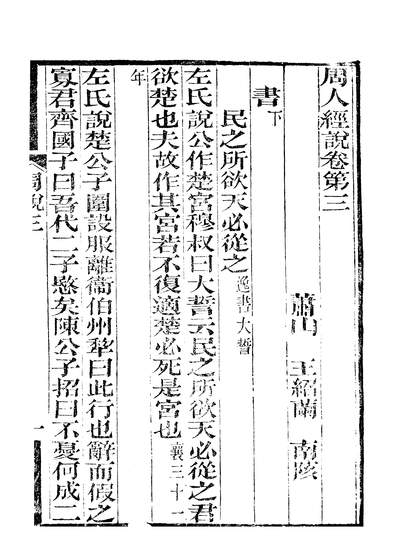 周人經說卷第三
蕭山 王紹蘭 南陔
書下
民之所欲天必從之逸書大誓
左氏說公作楚宮穆叔曰大誓云民之所欲天必從之君
欲楚也夫故作其宮若不復適楚必死是宮也襄三十一
年
左氏說楚公子圍設服離衞伯州犂曰此行也辭而假之
寡君齊國子曰吾代二子愍矣陳公子招曰不憂何成二
周說三
一